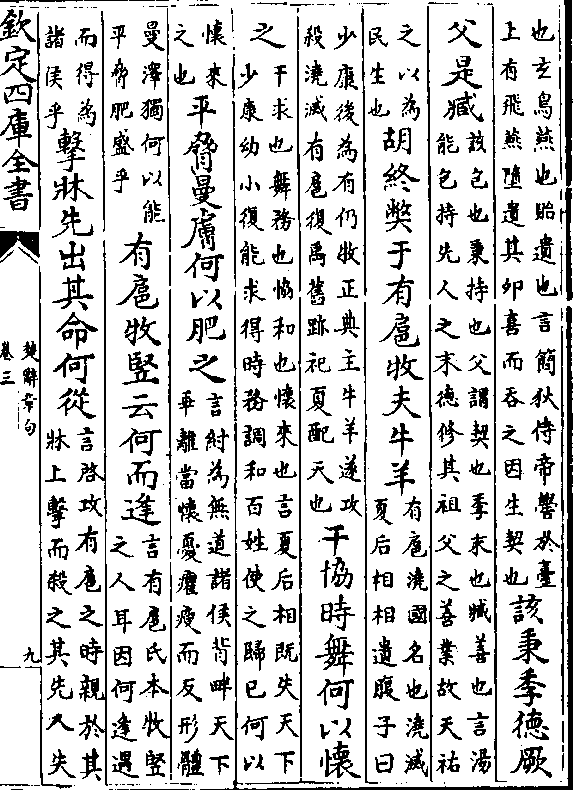 也玄鳥燕也貽遺也言簡狄侍帝嚳於臺
上有飛燕墮遺其卵喜而吞之因生契也
該秉季德厥
父是臧
該包也秉持也父謂契也季末也臧善也言湯
能包持先人之末德修其祖父之善業故天祐
之以為
民生也
胡終弊于有扈牧夫牛羊
有扈澆國名也澆滅
夏后相相遺腹子曰
少康後為有仍牧正典主牛羊遂攻
殺澆滅有扈復禹舊跡祀夏配天也
干協時舞何以懷
之
干求也舞務也恊和也懷來也言夏后相既失天下
少康幼小復能求得時務調和百姓使之歸己何以
懷來
之也
平脅曼膚何以肥之
言紂為無道諸侯背畔天下
乖離當懷憂癯瘦而反形體
曼澤獨何以能
平脅肥盛乎
有扈牧豎云何而逢
言有扈氏本牧豎
之人耳因何逢遇
而得為
諸侯乎
擊牀先出其命何從
言啓攻有扈之時親於其
牀上擊而殺之其先人失
欽定四庫全書
楚辭章句
卷三
九